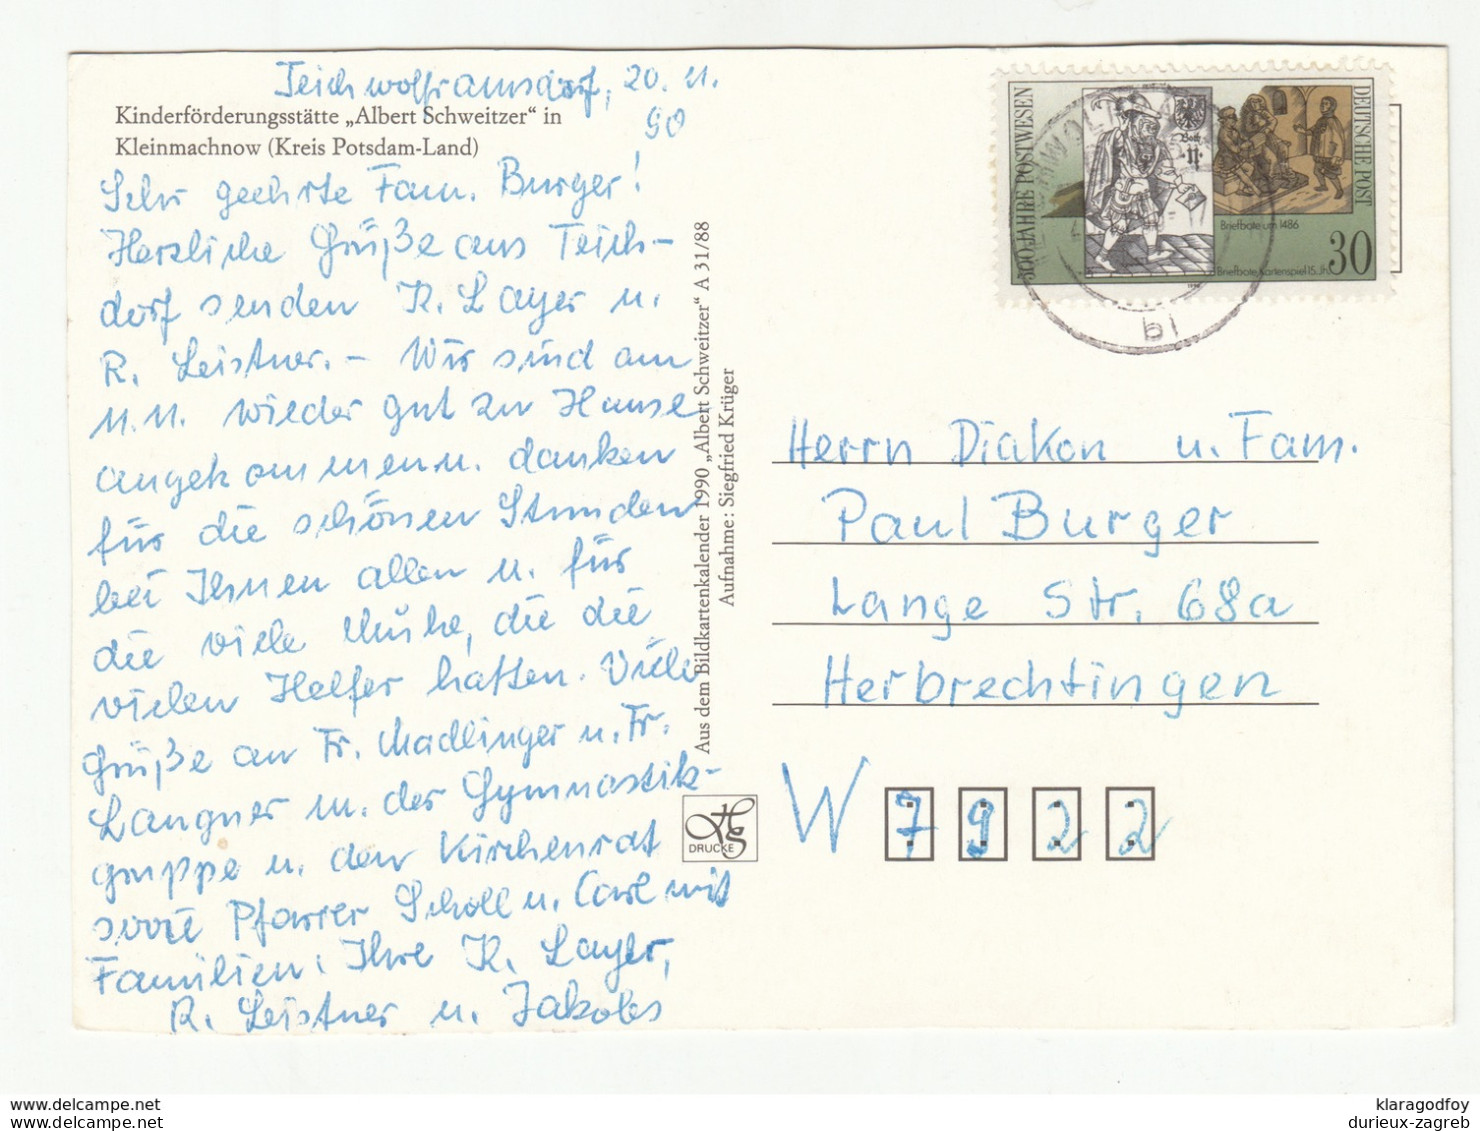 Teichwolframsdorf, 20.11.
90
Kinderförderungsstätte „Albert Schweitzer“ in
Kleinmachnow (Kreis Potsdam-Land)
Sehr geehrte Fam. Burger!
Herzliche Grüße aus Teich-
dorf senden K. Layer u.
R. Leistner. – Wir sind am
11.11. wieder gut zu Hause
angekommen u. danken
für die schönen Stunden
bei Ihnen allen u. für
die viele Mühe, die die
vielen Helfer hatten. Viele
Grüße an Fr. Madlinger u. Fr.
Langner m. der Gymnastik-
gruppe u. den Kirchenrat
sowie Pfarrer Scholl u. Carl mit
Familien. Ihre K. Layer,
R. Leistner u. Jakobs
Aus dem Bildkartenkalender 1990 „Albert Schweitzer“ A 31/88
Aufnahme: Siegfried Krüger
HS
DRUCKE
500 JAHRE POSTWESEN
DEUTSCHE POST
Briefbote um 1486
Briefbote Kartenspiel 15. Jh.
30
1990
bl
Herrn Diakon u. Fam.
Paul Burger
Lange Str. 68a
Herbrechtingen
W 7922
klaragodfoy
durieux-zagreb
delcampe.net
delcampe.net